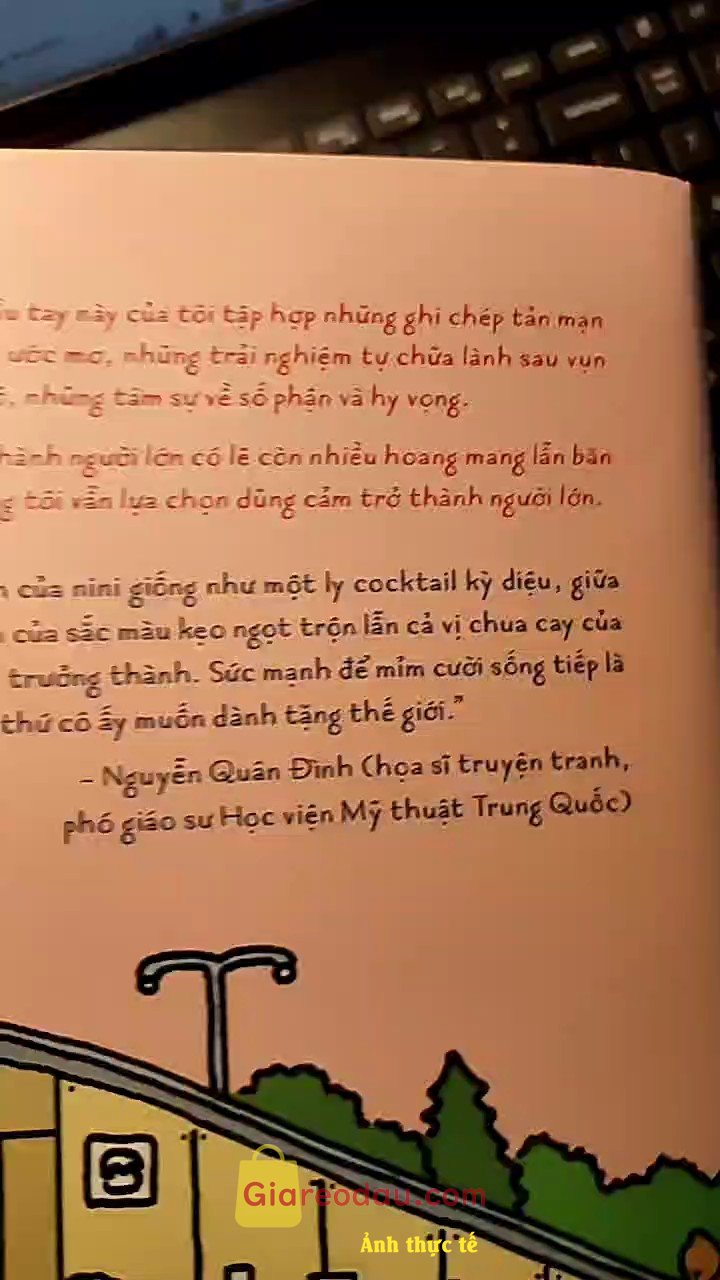 tay này của tôi tập hợp những ghi chép tản mạn
ước mơ, những trải nghiệm tự chữa lành sau vụn
những tâm sự về số phận và hy vọng.
thành người lớn có lẽ còn nhiều hoang mang lẫn băn
tôi vẫn lựa chọn dũng cảm trở thành người lớn.
của nini giống như một ly cocktail kỳ diệu, giữa
của sắc màu kẹo ngọt trộn lẫn cả vị chua cay của
trưởng thành. Sức mạnh để mỉm cười sống tiếp là
thứ cô ấy muốn dành tặng thế giới.”
– Nguyễn Quân Đình (họa sĩ truyện tranh,
phó giáo sư Học viện Mỹ thuật Trung Quốc)
Giareodau.com
Ảnh thực tế